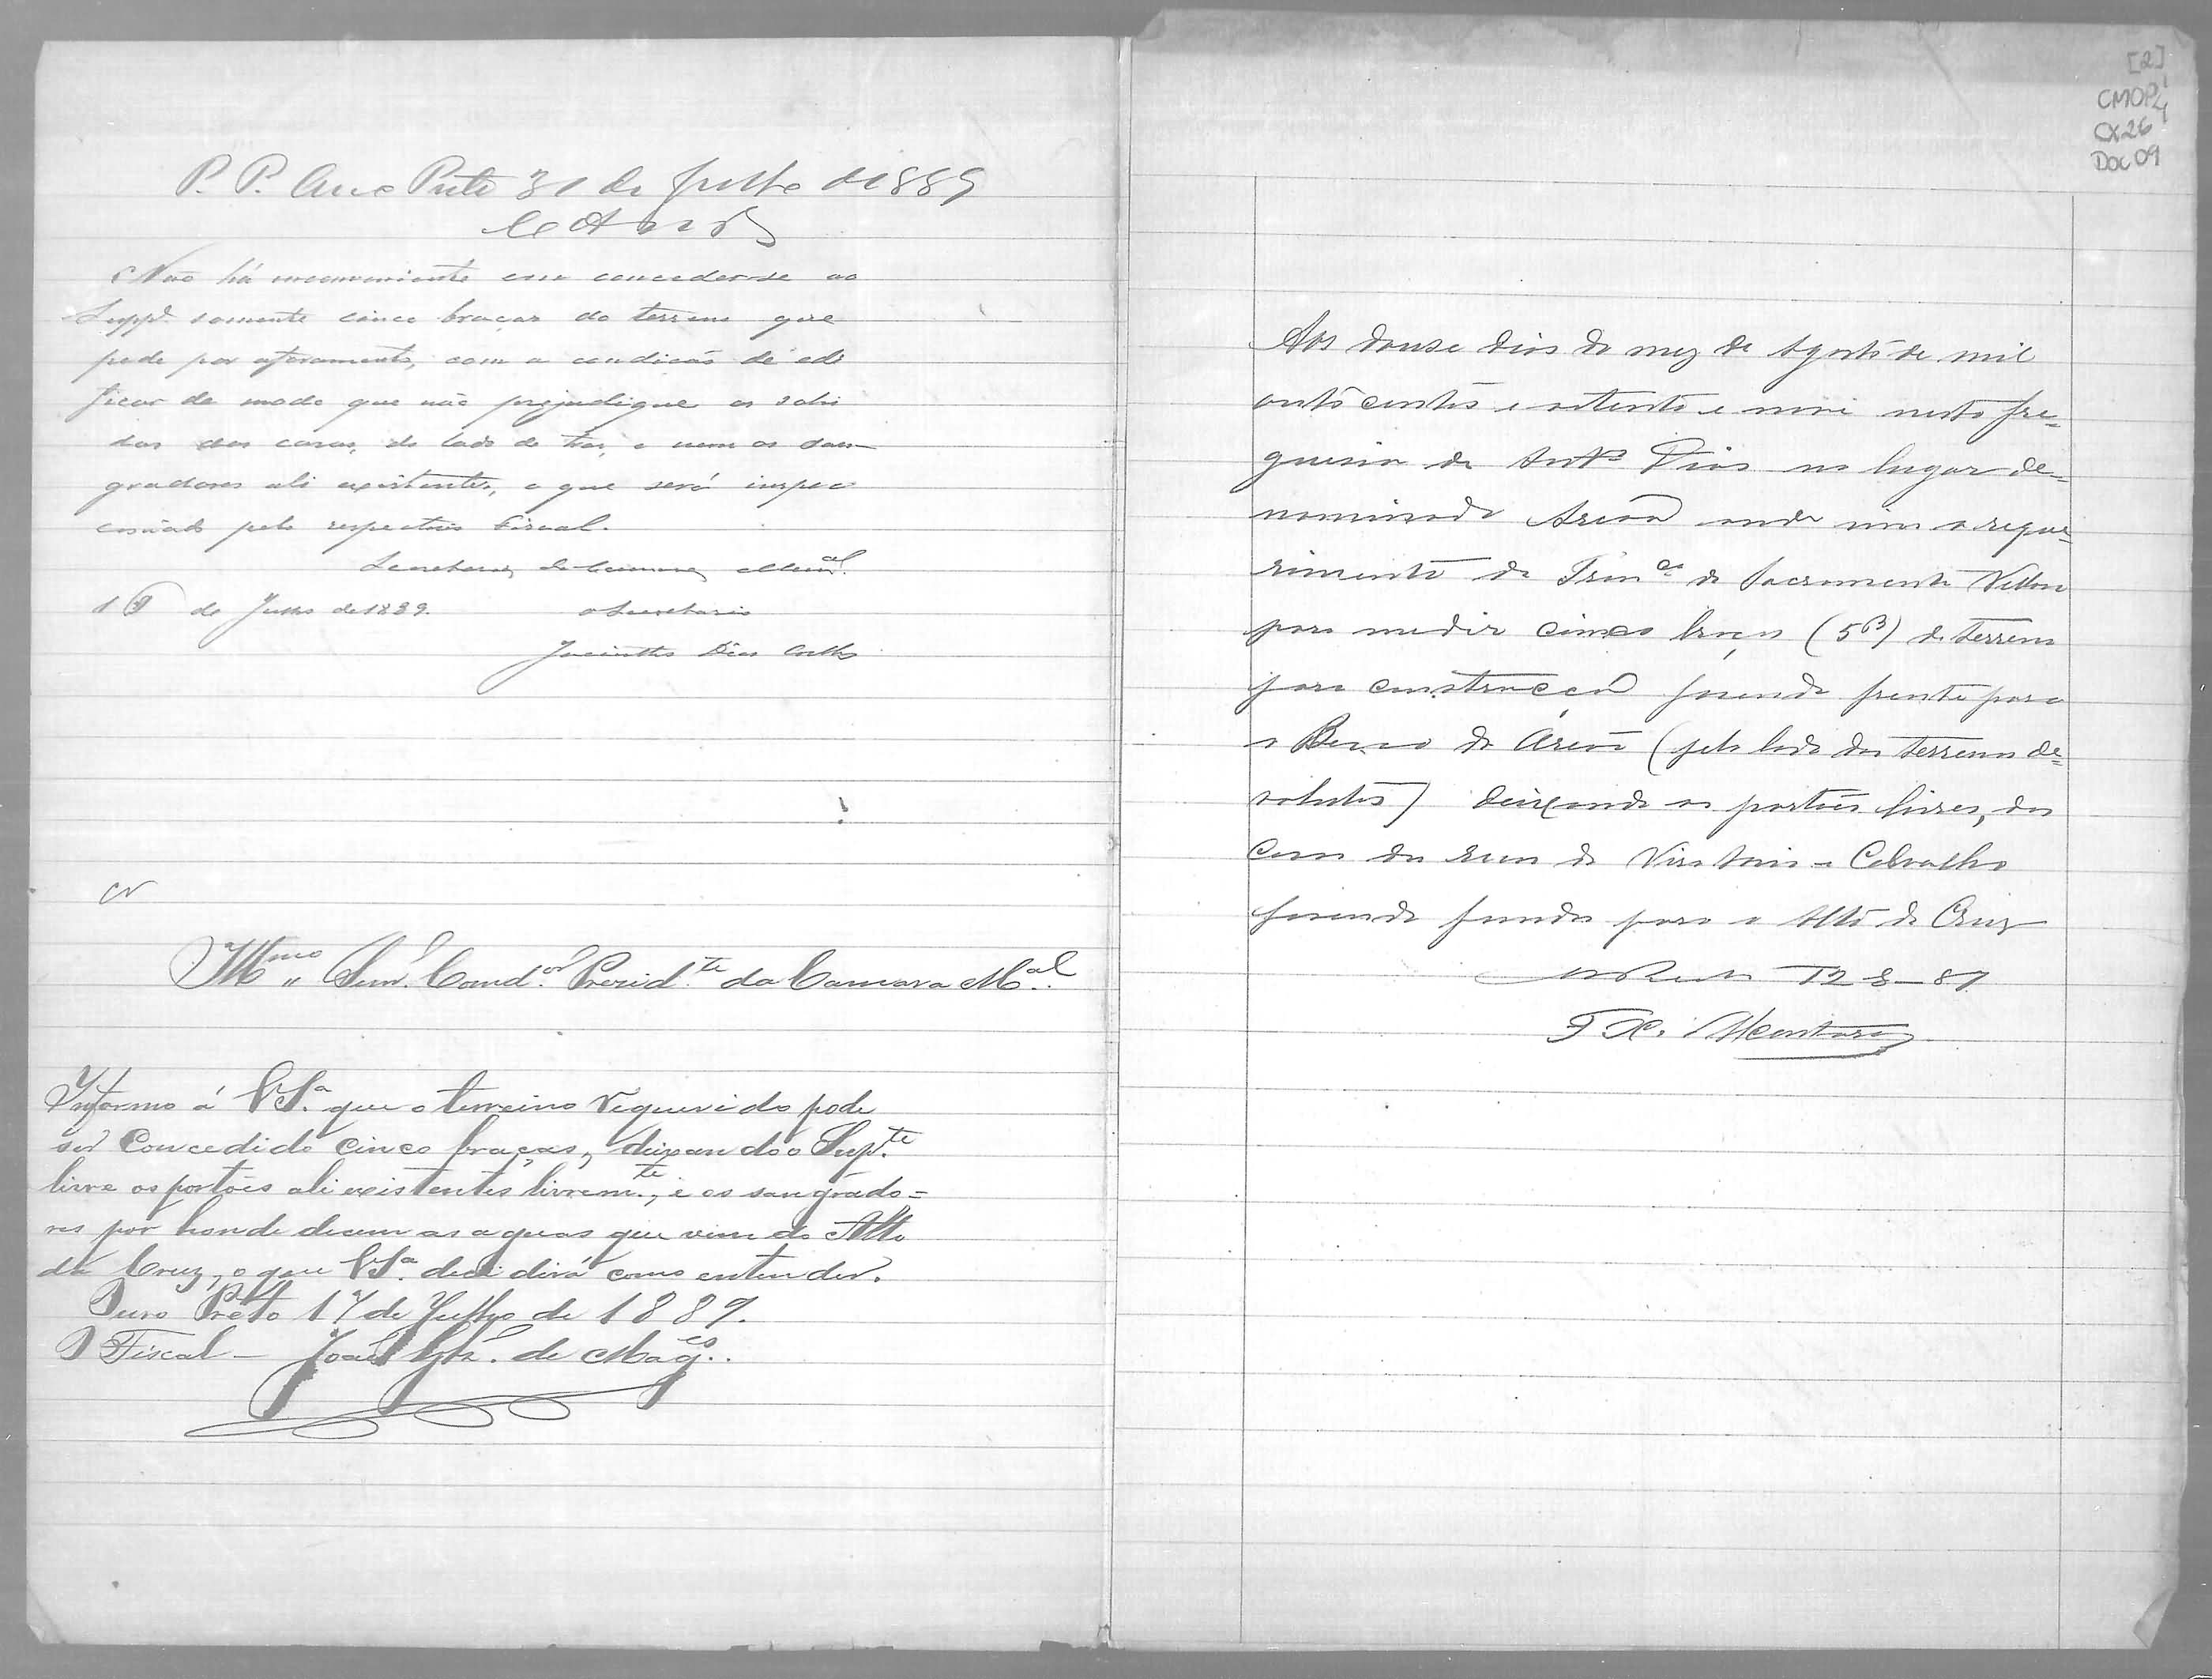 P. P. Ouro Preto 31 de Julho de 1889
Não há inconveniente em conceder-se ao
Supp.e somente cinco braças do terreno que
pede por aforamento, com a condicão de edi
ficar de modo que não prejudique as sahi
das das casas, do lado de traz, e nem os san-
gradores ali existentes, o que será inspec
cionado pelo respectivo Fiscal.
Secretaria da Camara Mun.al
de Julho de 1889. o Secretario
Jacintho Dias Coelho
Illmo Senr. Comd.or Presid.te da Camara M.al
Informo á V.S.a que o terreino requerido pode
ser Concedido cinco braças, deixando o Sup.te
livre os portões ali existentes livrem.te, e os sangrado=
res por honde decem as aguas que vem do Alto
da Cruz, o que V.S.a decidirá como entender.
Ouro Preto 17 de Julho de 1889.
O Fiscal - João de Mag.es
[2]
CMOP
CX26
DOC 09
Aos douse dias do mez de Agosto de mil
outo centos e oitenta e nove nesta fre=
guesia de Antº Dias no lugar de=
nominado Areão onde vim a reque=
rimento de Fran.co do Sacramento
para medir cinco braças (5B) de terreno
para construcção fasendo frente para
o Beco do Areão (pelo lado dos terrenos de=
volutos) deixando os portões livres, das
casas da rua de Vira Saia e Calvalho
fasendo fundos para o Alto da Cruz
O. Preto 12-8-89
F. X. Alcantara